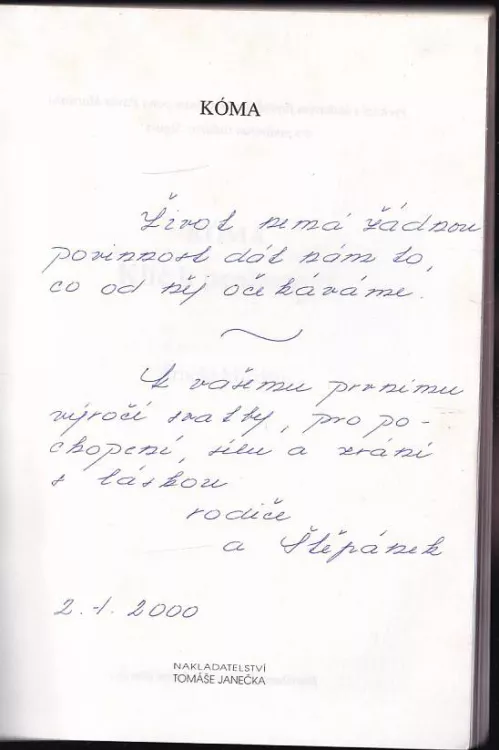 KÓMA
Život nemá žádnou
povinnost dát nám to,
co od něj očekáváme.
K vašemu prvnímu
výročí svatby, pro po-
chopení, sílu a zrání
s láskou
rodiče
a Štěpánek
2.1. 2000
NAKLADATELSTVÍ
TOMÁŠE JANEČKA